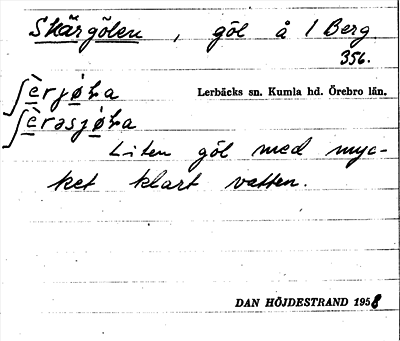 Skärgölen, göl å 1 Berg
356.
Lerbäcks sn. Kumla hd. Örebro län.
Liten göl med myc-
ket klart vatten.
DAN HÖJDESTRAND 1958